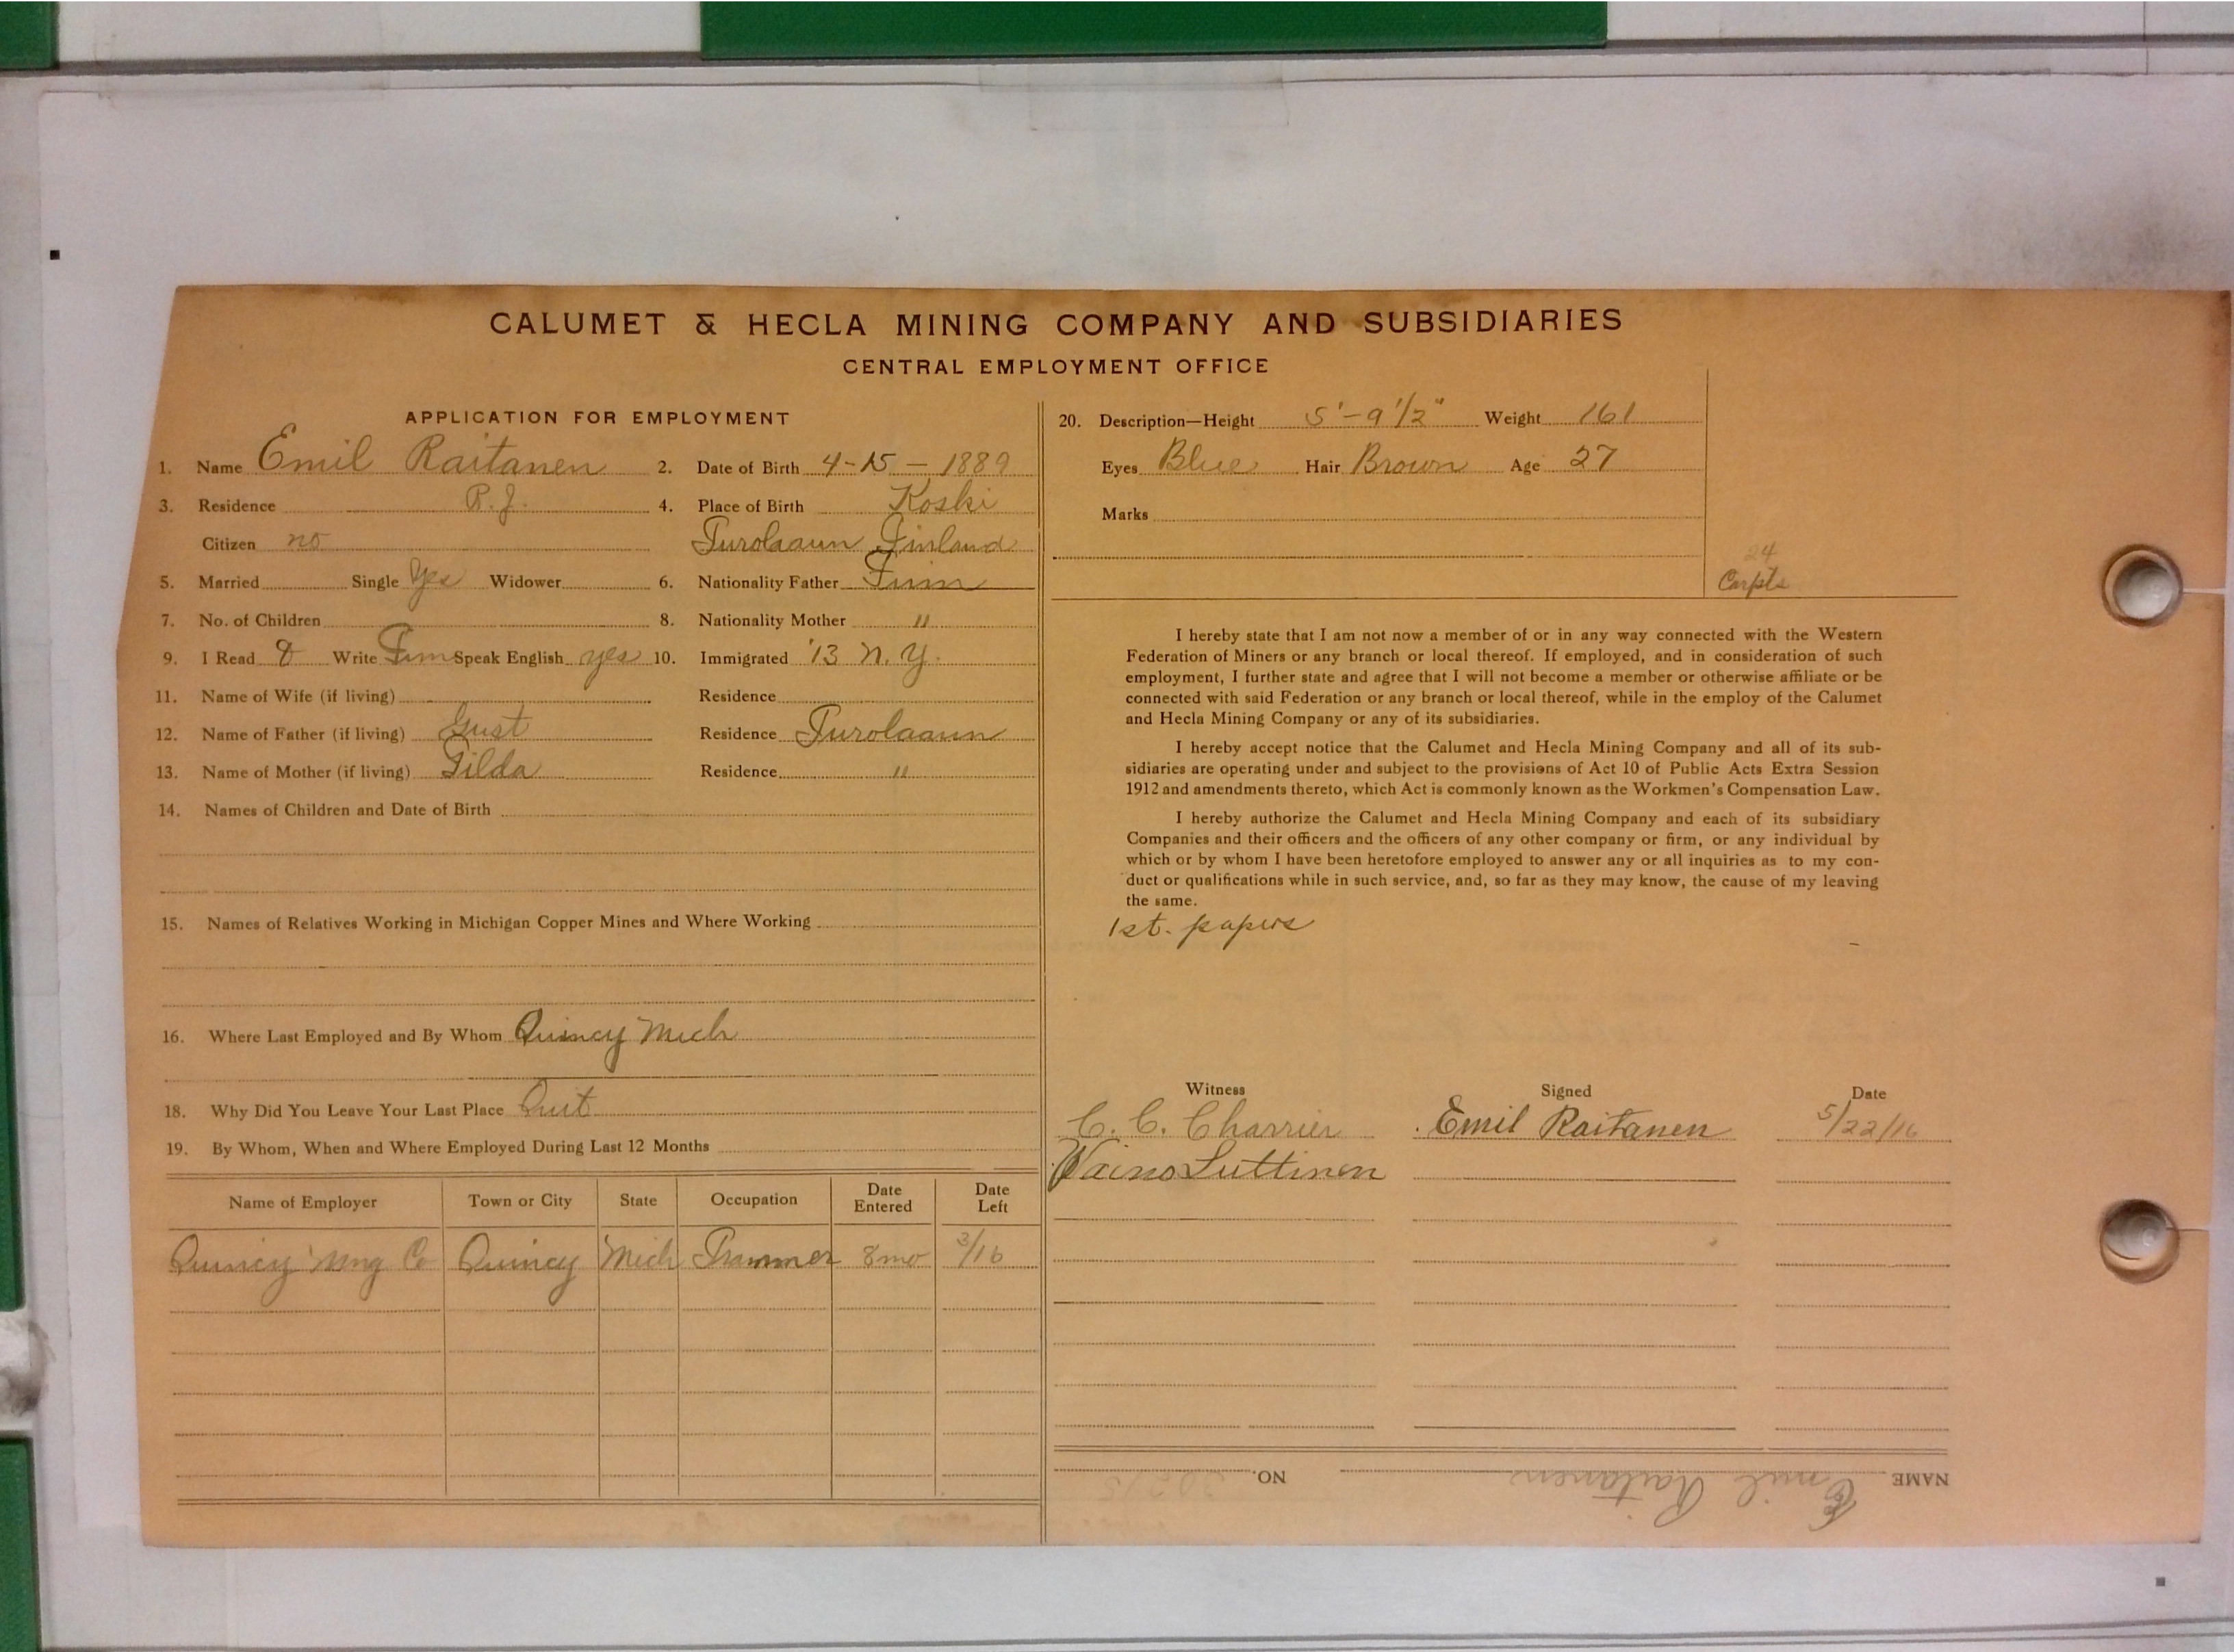 CALUMET & HECLA MINING COMPANY AND SUBSIDIARIES
CENTRAL EMPLOYMENT OFFICE
APPLICATION FOR EMPLOYMENT
1. Name Emil Raitanen 2. Date of Birth 4-15-1889
3. Residence R.J. 4. Place of Birth Koski
Citizen no Turolaaun Finland
5. Married Single Yes Widower 6. Nationality Father Finn
7. No. of Children 8. Nationality Mother "
9. I Read & Write Finn Speak English yes 10. Immigrated '13 N.Y.
11. Name of Wife (if living) Residence
12. Name of Father (if living) Gust Residence Turolaaun
13. Name of Mother (if living) Tilda Residence "
14. Names of Children and Date of Birth
15. Names of Relatives Working in Michigan Copper Mines and Where Working
16. Where Last Employed and By Whom Quincy Mich
18. Why Did You Leave Your Last Place Quit
19. By Whom, When and Where Employed During Last 12 Months
Name of Employer Town or City State Occupation Date Entered Date Left
Quincy Mng Co Quincy Mich Trammer 8 mo 3/16
20. Description—Height 5'-9 1/2" Weight 161
Eyes Blue Hair Brown Age 27
Marks
24
I hereby state that I am not now a member of or in any way connected with the Western
Federation of Miners or any branch or local thereof. If employed, and in consideration of such
employment, I further state and agree that I will not become a member or otherwise affiliate or be
connected with said Federation or any branch or local thereof, while in the employ of the Calumet
and Hecla Mining Company or any of its subsidiaries.
I hereby accept notice that the Calumet and Hecla Mining Company and all of its sub-
sidiaries are operating under and subject to the provisions of Act 10 of Public Acts Extra Session
1912 and amendments thereto, which Act is commonly known as the Workmen's Compensation Law.
I hereby authorize the Calumet and Hecla Mining Company and each of its subsidiary
Companies and their officers and the officers of any other company or firm, or any individual by
which or by whom I have been heretofore employed to answer any or all inquiries as to my con-
duct or qualifications while in such service, and, so far as they may know, the cause of my leaving
the same.
1st. papers
Witness Signed Date
C. C. Charrier Emil Raitanen 5/22/16
Waino Luttinen
NAME Emil Raitanen NO.